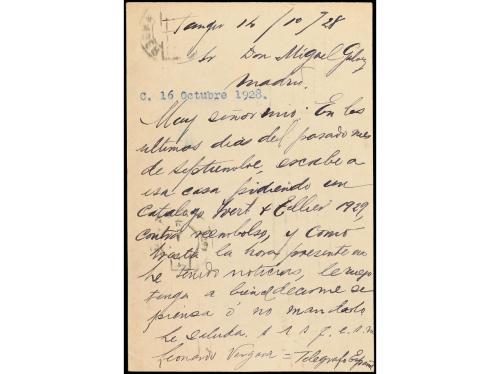 Tanger 14/10/28
Sr Don Miguel Galvez
Madrid.
C. 16 Octubre 1928.
Muy señor mio: En los
ultimos dias del pasado mes
de septiembre, escribe a
esa casa pidiendo un
Catalogo Yvert & Tellier 1929,
contra reembolso, y como
hasta la hora presente no
he tenido noticias, le ruego
tenga a bien decirme se
piensa ó no mandarlo
Le saluda. s s s q. e. s. m
Leonardo Vergara = Telegrafo Español